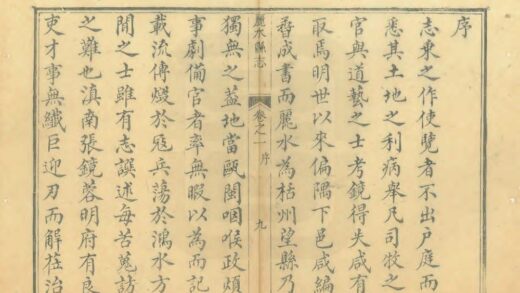 序
志乘之作使覽者不出戶庭而
悉其土地之利病舉凡司牧之
官與道藝之士考鏡得失咸有
取焉明世以來偏隅下邑咸編
番成書而麗水為栝州望縣乃
麗水縣志
卷之一 序
九
獨無之葢地當甌閩咽喉政煩
事劇備官者率無暇以為而記
載流傳燬於寇兵蕩於鴻水方
聞之士雖有志譔述每苦蒐訪
之難也滇南張鏡蓉明府有良
吏才事無纖巨迎刃而解莅治